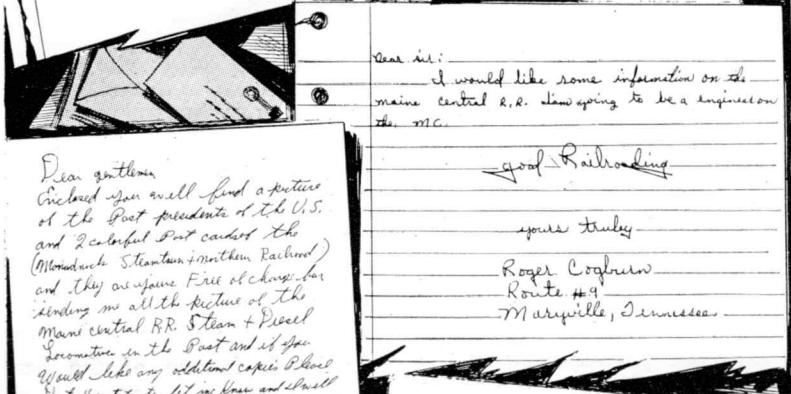 Dear gentlemen
Enclosed you will find a picture
of the Past presidents of the U.S.
and 2 colorful Post cards of the
(Monadnock Steamtown & northern Railroad)
and they are yours Free of charge for
sending me all the picture of the
Maine central RR. Steam + Diesel
Locomotives in the Past and if you
Would like any additional copies Please
to let me know and I will
Dear sir:
I would like some information on the
maine central R.R. I am going to be a engineer on
the MC.
good Railroading
yours truley
Roger Cogburn
Route #9
Maryville, Tennessee